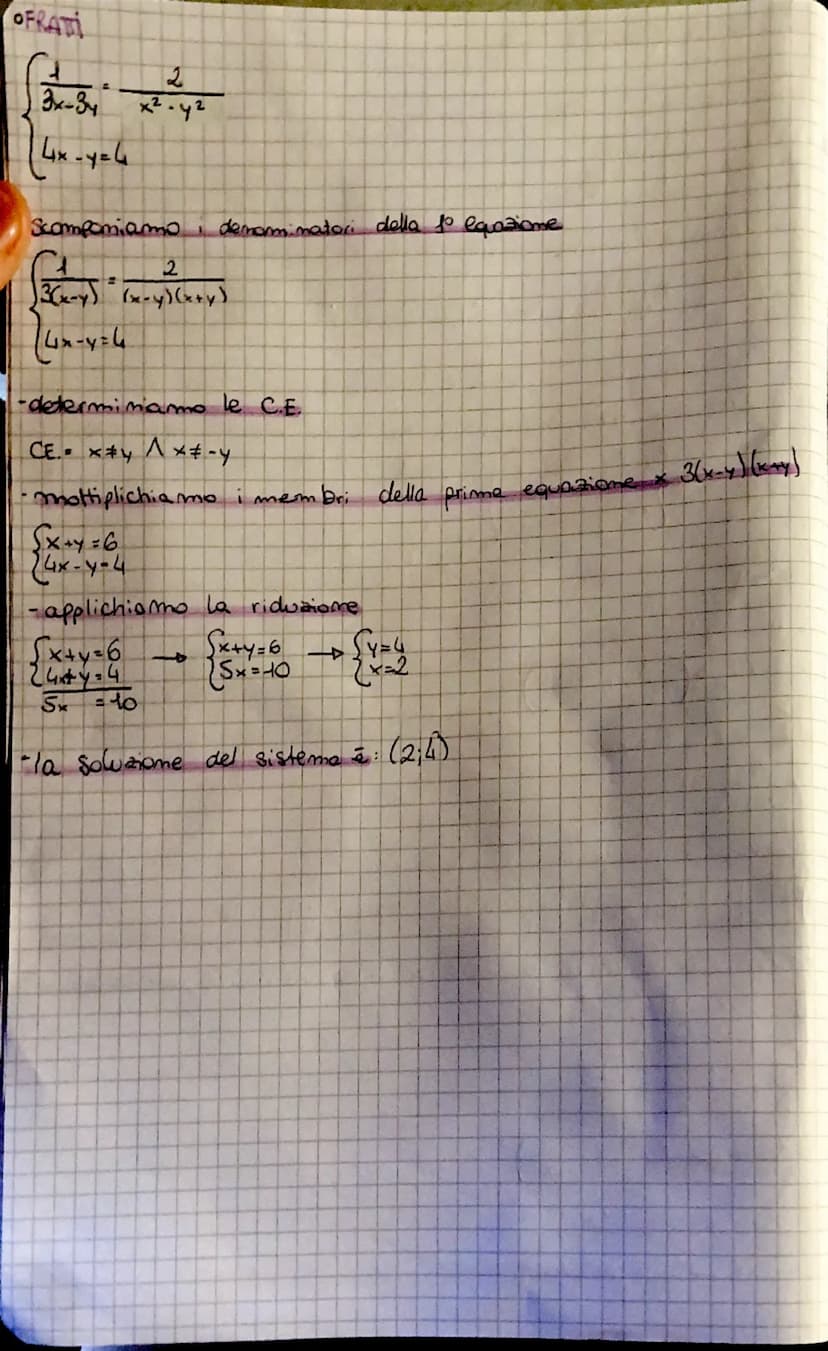 °FRATTI
{ 1/(3x-3y) = 2/(x²-y²)
{ 4x-y=4
scomponiamo i denominatori della 1° equazione
{ 1/(3(x-y)) = 2/((x-y)(x+y))
{ 4x-y=4
-determiniamo le C.E.
C.E.= x≠y ∧ x≠-y
-moltiplichiamo i membri della prima equazione x 3(x-y)(x+y)
{ x+y=6
{ 4x-y=4
-applichiamo la riduzione
{ x+y=6 → { x+y=6 → { y=4
{ 4x+y=4 { 5x=10 { x=2
5x =10
-la soluzione del sistema è: (2;4)